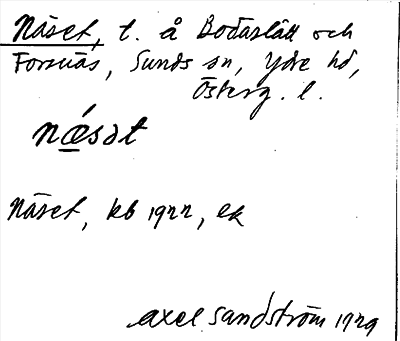 Näset, t. å Bodaslätt och
Forsnäs, Sunds sn, Ydre hd,
Österg. l.
nǽ̲sət
Näset, kb 1922, ek
Axel Sandström 1929